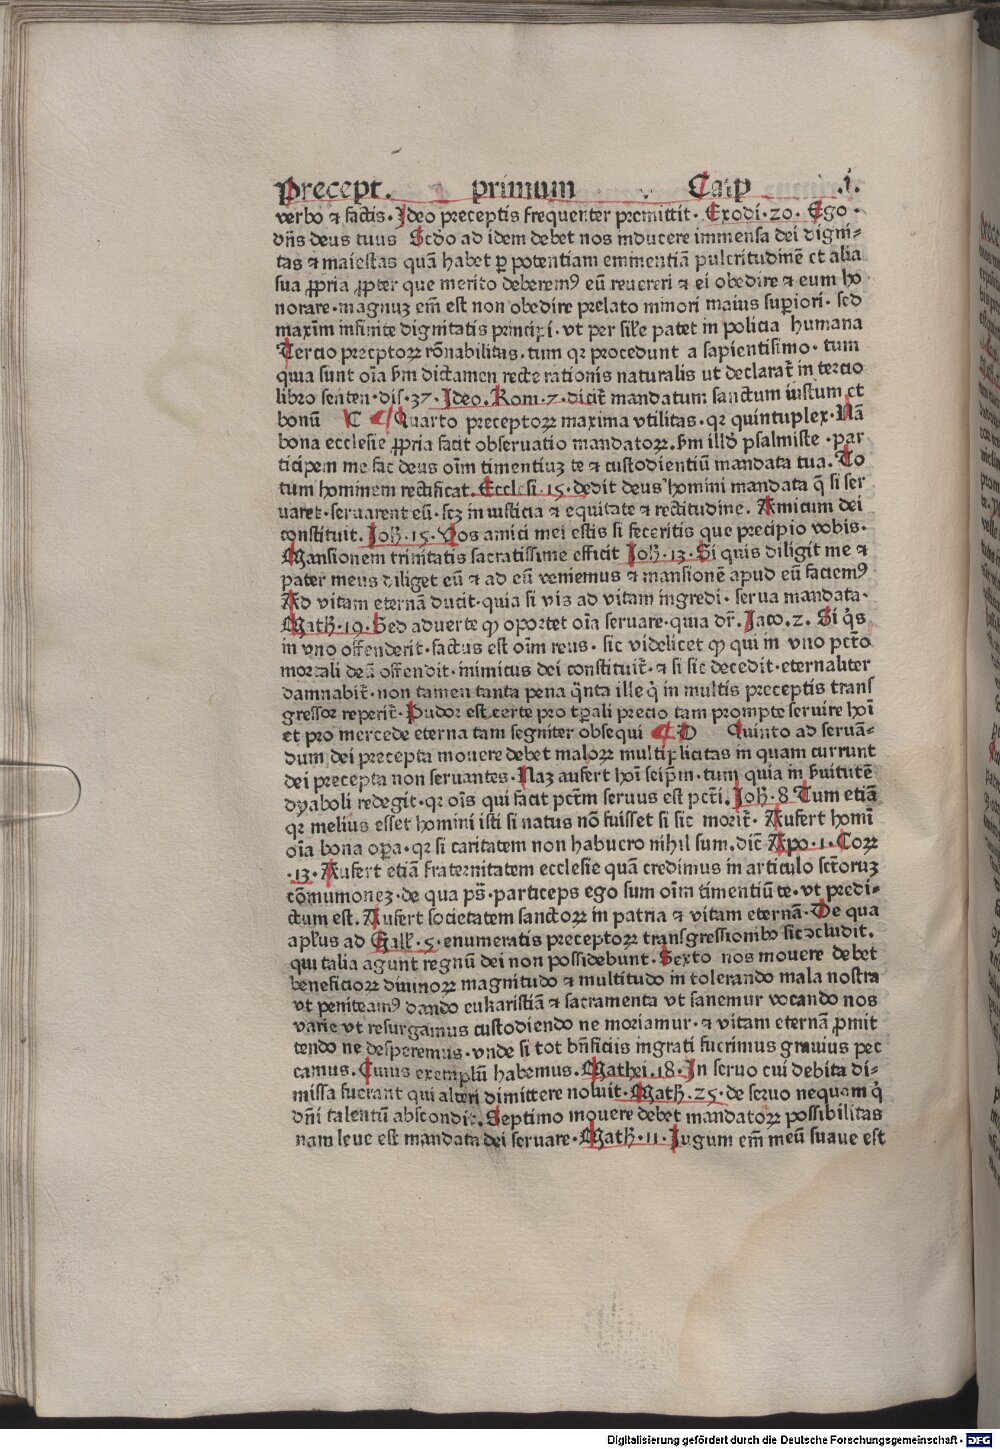 Precept. primum Caip .i.
verbo ⁊ factis. Ideo preceptis frequenter premittit. Exodi. 20. Ego
dñs deus tuus Scdo ad idem debet nos inducere immensa dei digni⸗
tas ⁊ maiestas quā habet ꝑ potentiam eminentiā pulcritudinē et alia
sua ꝓpria ꝓpter que merito deberemꝰ eū reuereri ⁊ ei obedire ⁊ eum ho
norare. magnuz em̄ est non obedire prelato minori maius supiori. sed
maxim infinite dignitatis principi. vt per sile patet in policia humana
Tercio preceptoꝝ rōnabilitas. tum qꝛ procedunt a sapientisimo. tum
quia sunt oīa ẜm dictamen recte rationis naturalis ut declarat̄ in tercio
libro senten. dis. 37. Ideo. Rom. 7. dicit̄ mandatum sanctum iustum et
bonū C Quarto preceptoꝝ maxima vtilitas. qꝛ quintuplex. Nā
bona ecclesie ꝓpria facit obseruatio mandatoꝝ. ẜm illd̕ psalmiste. par
ticipem me fac deus oīm timentiuz te ⁊ custodientiū mandata tua. To
tum hominem rectificat. Ecclesi. 15. dedit deus homini mandata q̄ si ser
uaret. seruarent eū. scz in iusticia ⁊ equitate ⁊ rectitudine. Amicum dei
constituit. Joh̄. 15. Vos amici mei estis si feceritis que precipio vobis.
Mansionem trinitatis sacratissime efficit Joh̄. 13. Si quis diligit me ⁊
pater meus diliget eū ⁊ ad eū veniemus ⁊ mansionē apud eū faciemꝰ
Ad vitam eternā ducit. quia si vis ad vitam ingredi. serua mandata.
Math̄. 19. Sed aduerte ꝙ oportet oīa seruare. quia dr̄. Jaco. 2. Si q̇s
in vno offenderit. factus est oīm reus. sic videlicet ꝙ qui in vno pctō
mortali deū offendit. inimicus dei constituit̄. ⁊ si sic decedit. eternaliter
damnabit̄. non tamen tanta pena q̄nta ille q̇ in multis preceptis trans
gressor reperit̄. Pudor est certe pro tꝑali precio tam prompte seruire hoī
et pro mercede eterna tam segniter obsequi D Quinto ad seruā⸗
dum dei precepta mouere debet maloꝝ multiplicitas in quam currunt
dei precepta non seruantes. Naz aufert hoī seip̄m. tum quia in ẜuitutē
dyaboli redegit. qꝛ oīs qui facit pctm̄ seruus est pctī. Joh̄. 8 Tum etiā
qꝛ melius esset homini isti si natus nō fuisset si sic morit̄. Aufert homī
oīa bona oꝑa. qꝛ si caritatem non habuero nihil sum. dic̄ Apo. 1. Coꝝ
.13. Aufert etiā fraternitatem ecclesie quā credimus in articulo sctōruz
cōmunionez. de qua ps̄. particeps ego sum oīm timentiū te. vt predi⸗
ctum est. Aufert societatem sanctoꝝ in patria ⁊ vitam eternā. De qua
aplus ad Gall. 5. enumeratis preceptoꝝ transgressionibꝫ sic ↄcludit.
qui talia agunt regnū dei non possidebunt. Sexto nos mouere debet
beneficioꝝ diuinoꝝ magnitudo ⁊ multitudo in tolerando mala nostra
vt peniteamꝰ dando eukaristiā ⁊ sacramenta vt sanemur vocando nos
varie vt resurgamus custodiendo ne moriamur. ⁊ vitam eternā ꝓmit
tendo ne desperemus. vnde si tot bn̄ficiis ingrati fuerimus grauius pec
camus. Cuius exemplū habemus. Mathei. 18. In seruo cui debita di⸗
missa fuerant qui alteri dimittere noluit. Math̄. 25. de seruo nequam q̇
dn̄i talentū abscondit. Septimo mouere debet mandatoꝝ possibilitas
nam leue est mandata dei seruare. Math̄. 11. Jugum em̄ meū suaue est
Digitalisierung gefördert durch die Deutsche Forschungsgemeinschaft - DFG